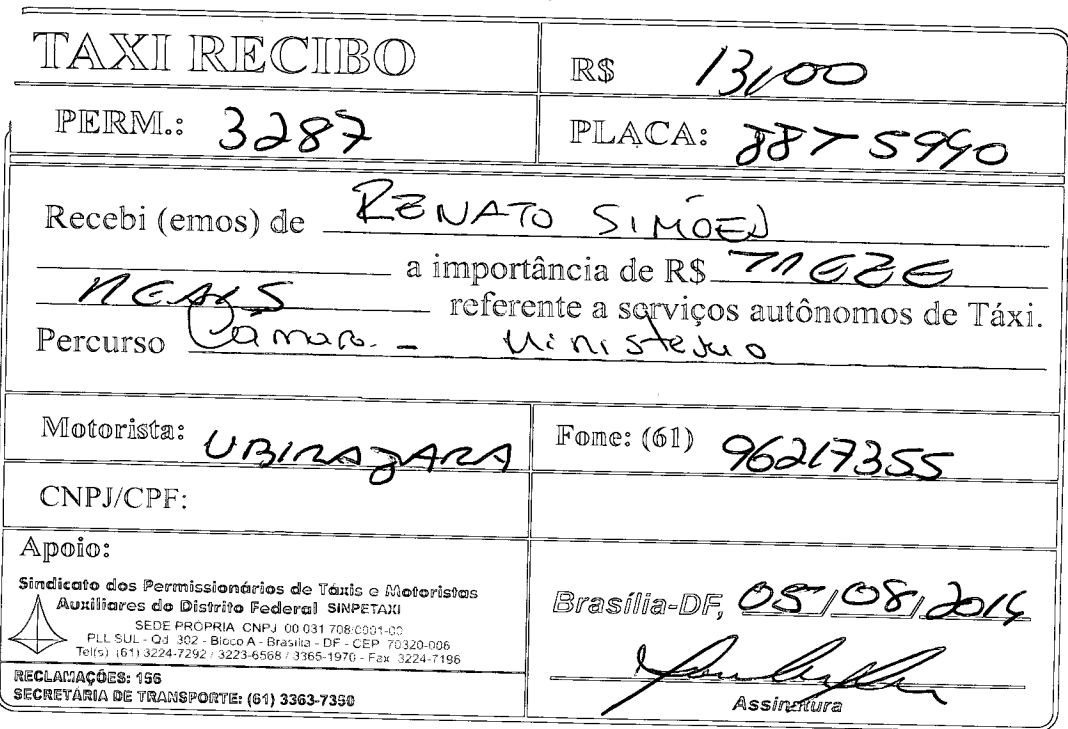 TAXI RECIBO
R$ 13,00
PERM.: 3287
PLACA: JJT 5990
Recebi (emos) de RENATO SIMÕES
a importância de R$ TREZE
REAIS referente a serviços autônomos de Táxi.
Percurso Câmara - Ministério
Motorista: UBIRAJARA
Fone: (61) 96217355
CNPJ/CPF:
Apoio:
Sindicato dos Permissionários de Táxis e Motoristas
Auxiliares do Distrito Federal SINPETAXI
SEDE PRÓPRIA CNPJ 00 031 708/0001-00
PLL SUL - Qd 302 - Bloco A - Brasília - DF - CEP 70320-006
Tel(s) (61) 3224-7292 / 3223-6568 / 3365-1970 - Fax 3224-7196
RECLAMAÇÕES: 156
SECRETÁRIA DE TRANSPORTE: (61) 3363-7350
Brasília-DF, 05/08/2014
Assinatura